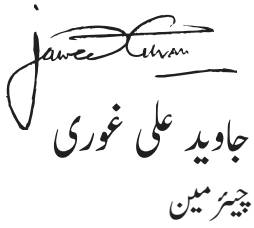 جاوید علی غوری
چیئرمین